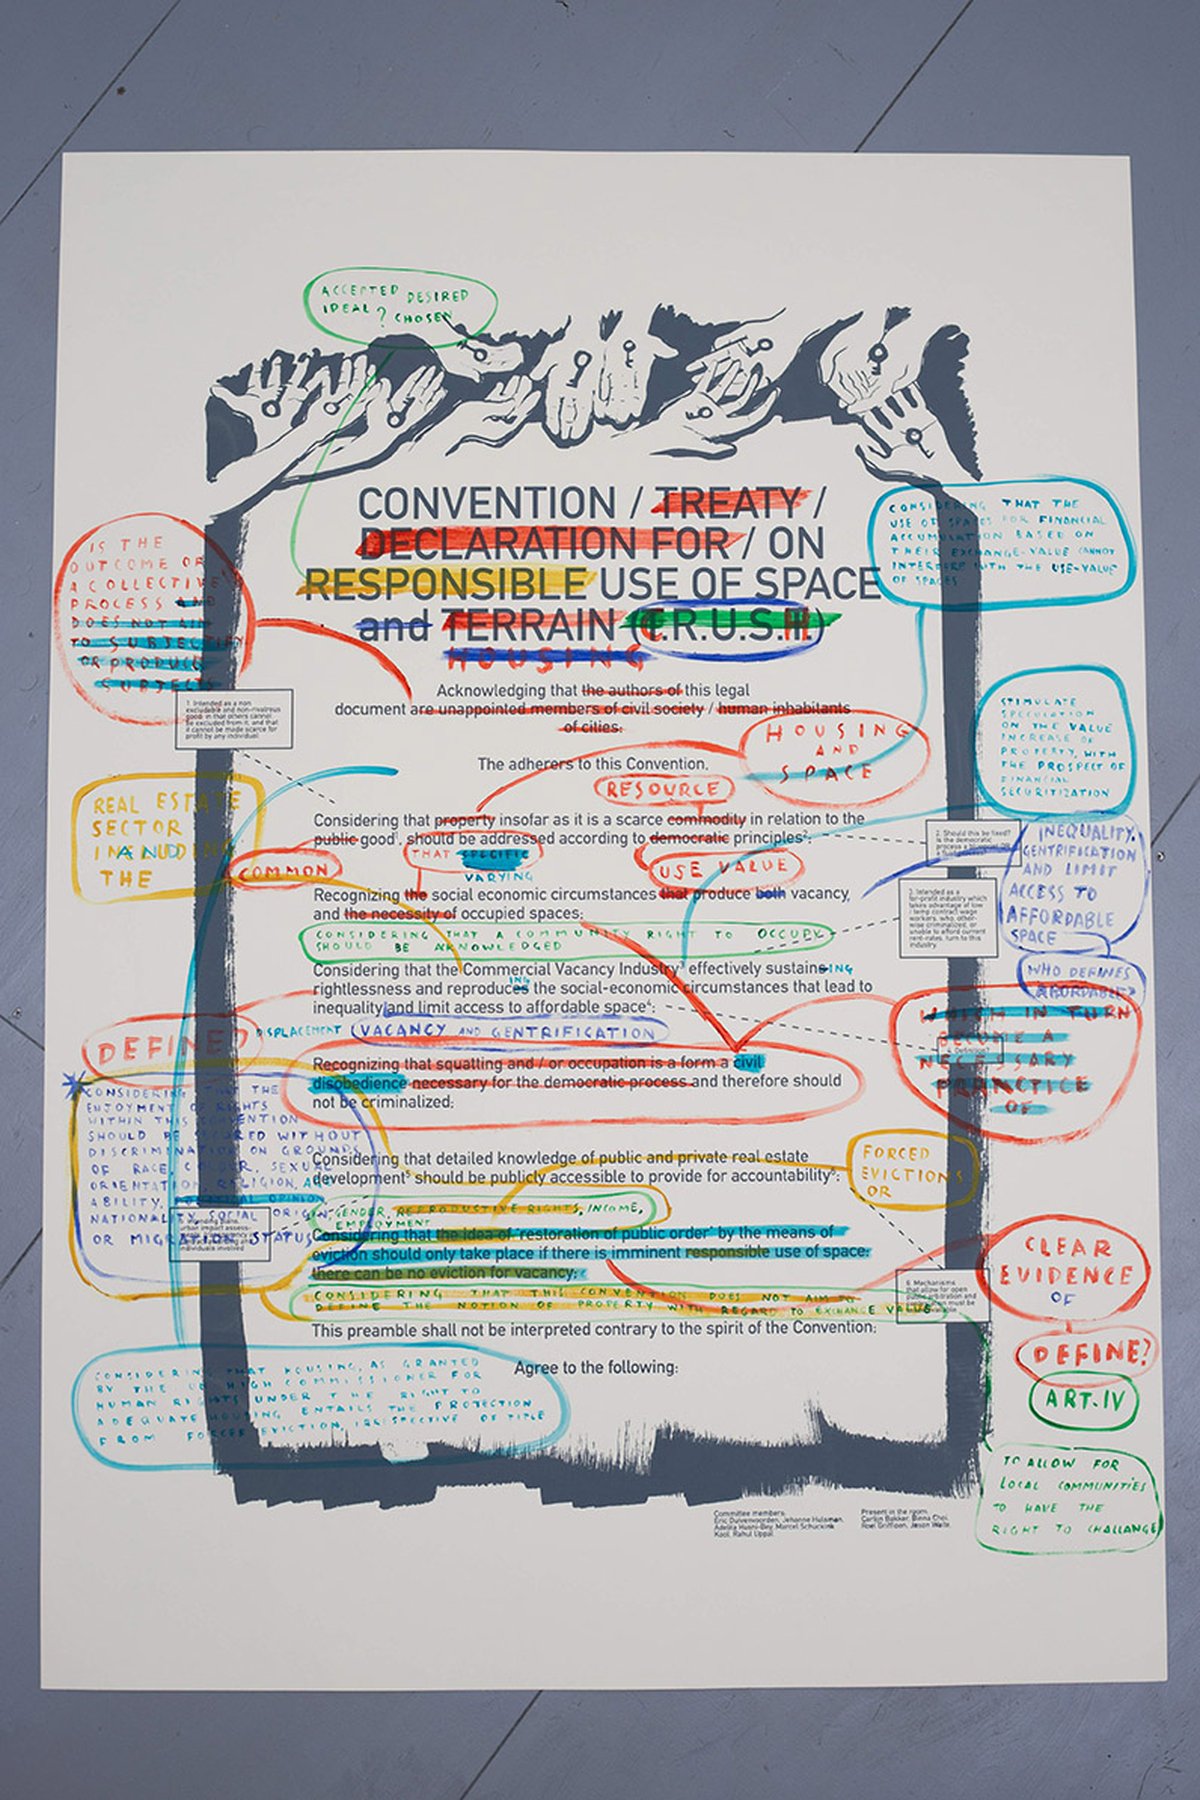 ACCEPTED DESIRED
IDEAL? CHOSEN
CONVENTION / TREATY /
DECLARATION FOR / ON
RESPONSIBLE USE OF SPACE
and TERRAIN (T.R.U.S.H)
HOUSING
CONSIDERING THAT THE
USE OF SPACES FOR FINANCIAL
ACCUMULATION BASED ON
THEIR EXCHANGE-VALUE CANNOT
INTERFERE WITH THE USE-VALUE
OF SPACES
IS THE
OUTCOME OF
A COLLECTIVE
PROCESS AND
DOES NOT AIM
TO SUBJECTIFY
OR PRODUCE
SUBJECTS
Acknowledging that the authors of this legal
document are unappointed members of civil society / human inhabitants
of cities:
1. Intended as a non
excludable and non-rivalrous
good: in that others cannot
be excluded from it, and that
it cannot be made scarce for
profit by any individual.
HOUSING
AND
SPACE
STIMULATE
SPECULATION
ON THE VALUE
INCREASE OF
PROPERTY, WITH
THE PROSPECT OF
FINANCIAL
SECURITIZATION
The adherers to this Convention,
RESOURCE
REAL ESTATE
SECTOR
INCLUDING
AND
THE
Considering that property insofar as it is a scarce commodity in relation to the
public good¹, should be addressed according to democratic principles²;
COMMON
THAT SPECIFIC
VARYING
USE VALUE
2. Should this be fixed?
Is the democratic
INEQUALITY,
GENTRIFICATION
AND LIMIT
ACCESS TO
AFFORDABLE
SPACE
Recognizing the social economic circumstances that produce both vacancy,
and the necessity of occupied spaces;
3. Intended as a
for-profit industry which
takes advantage of low
/ temp contract wage
workers, who, other-
wise criminalized, or
unable to afford current
rent-rates, turn to this
industry.
CONSIDERING THAT A COMMUNITY RIGHT TO OCCUPY
SHOULD BE ACKNOWLEDGED
WHO DEFINES
AFFORDABLE?
Considering that the Commercial Vacancy Industry³ effectively sustains ING
rightlessness and reproduces ING the social-economic circumstances that lead to
inequality and limit access to affordable space⁴;
DISPLACEMENT VACANCY AND GENTRIFICATION
DEFINED
WHICH IN TURN
BECOME A
NECESSARY
PRANCTICE
OF
Recognizing that squatting and / or occupation is a form a civil
disobedience necessary for the democratic process and therefore should
not be criminalized;
CONSIDERING THAT THE
ENJOYMENT OF RIGHTS
WITHIN THIS CONVENTION
SHOULD BE SECURED WITHOUT
DISCRIMINATION ON GROUNDS
OF RACE, COLOUR, SEXUAL
ORIENTATION, RELIGION, AGE
ABILITY, POLITICAL OPINION
NATIONAL, SOCIAL ORIGIN
OR MIGRATION STATUS
Considering that detailed knowledge of public and private real estate
development⁵ should be publicly accessible to provide for accountability⁶;
FORCED
EVICTIONS
OR
GENDER, REPRODUCTIVE RIGHTS, INCOME,
EMPLOYMENT
Considering that the idea of 'restoration of public order' by the means of
eviction should only take place if there is imminent responsible use of space:
there can be no eviction for vacancy;
CLEAR
EVIDENCE
OF
6. Mechanisms
that allow for open
CONSIDERING THAT THIS CONVENTION DOES NOT AIM TO
DEFINE THE NOTION OF PROPERTY WITH REGARD TO EXCHANGE VALUE
This preamble shall not be interpreted contrary to the spirit of the Convention;
DEFINE?
Agree to the following:
ART. IV
CONSIDERING THAT HOUSING, AS GRANTED
BY THE UN HIGH COMMISSIONER FOR
HUMAN RIGHTS UNDER THE RIGHT TO
ADEQUATE HOUSING ENTAILS THE PROTECTION
FROM FORCED EVICTION, IRRESPECTIVE OF TITLE
TO ALLOW FOR
LOCAL COMMUNITIES
TO HAVE THE
RIGHT TO CHALLANGE
Committee members:
Eric Duivenvoorden, Jehanne Hulsman,
Adelita Husni-Bey, Marcel Schuckink
Kool, Rahul Uppal
Present in the room:
Carlijn Bakker, Binna Choi,
Roel Griffioen, Jason Waite.